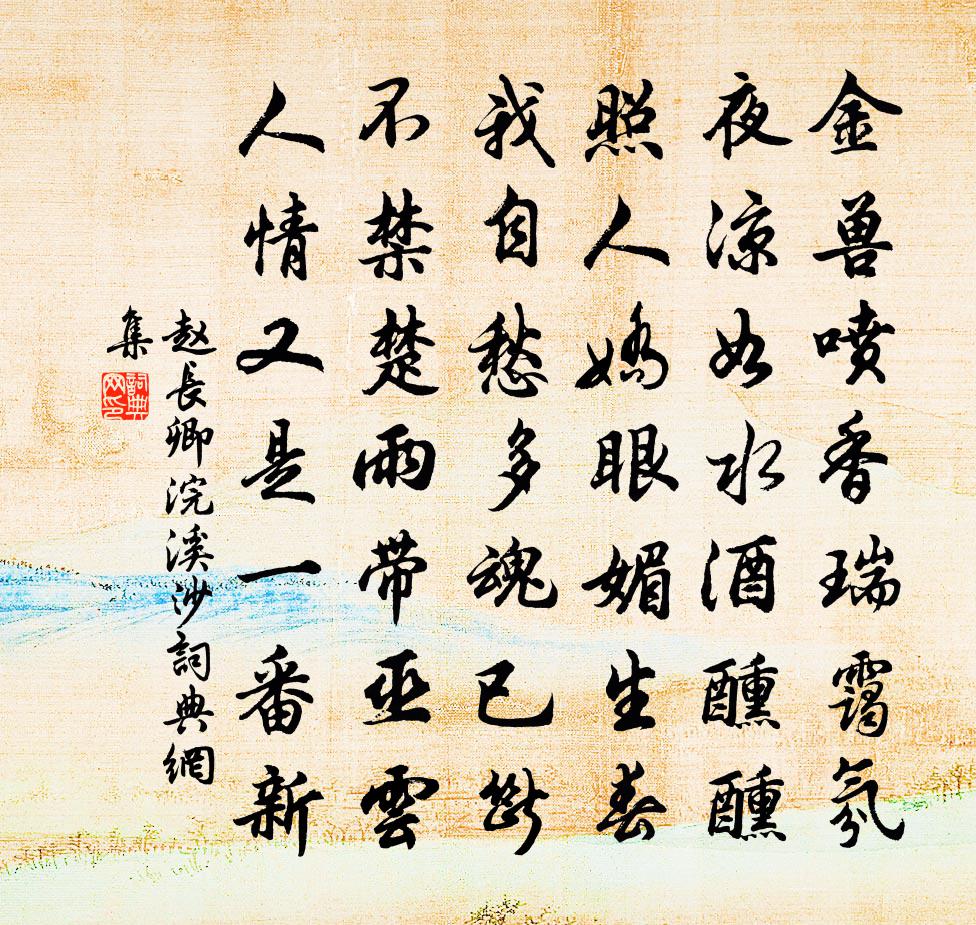 金兽喷香瑞霭氛
夜凉如水酒醺醺
照人娇眼媚生春
我自愁多魂已断
不禁楚雨带巫云
人情又是一番新
赵长卿浣溪沙词典网
集
词典网印